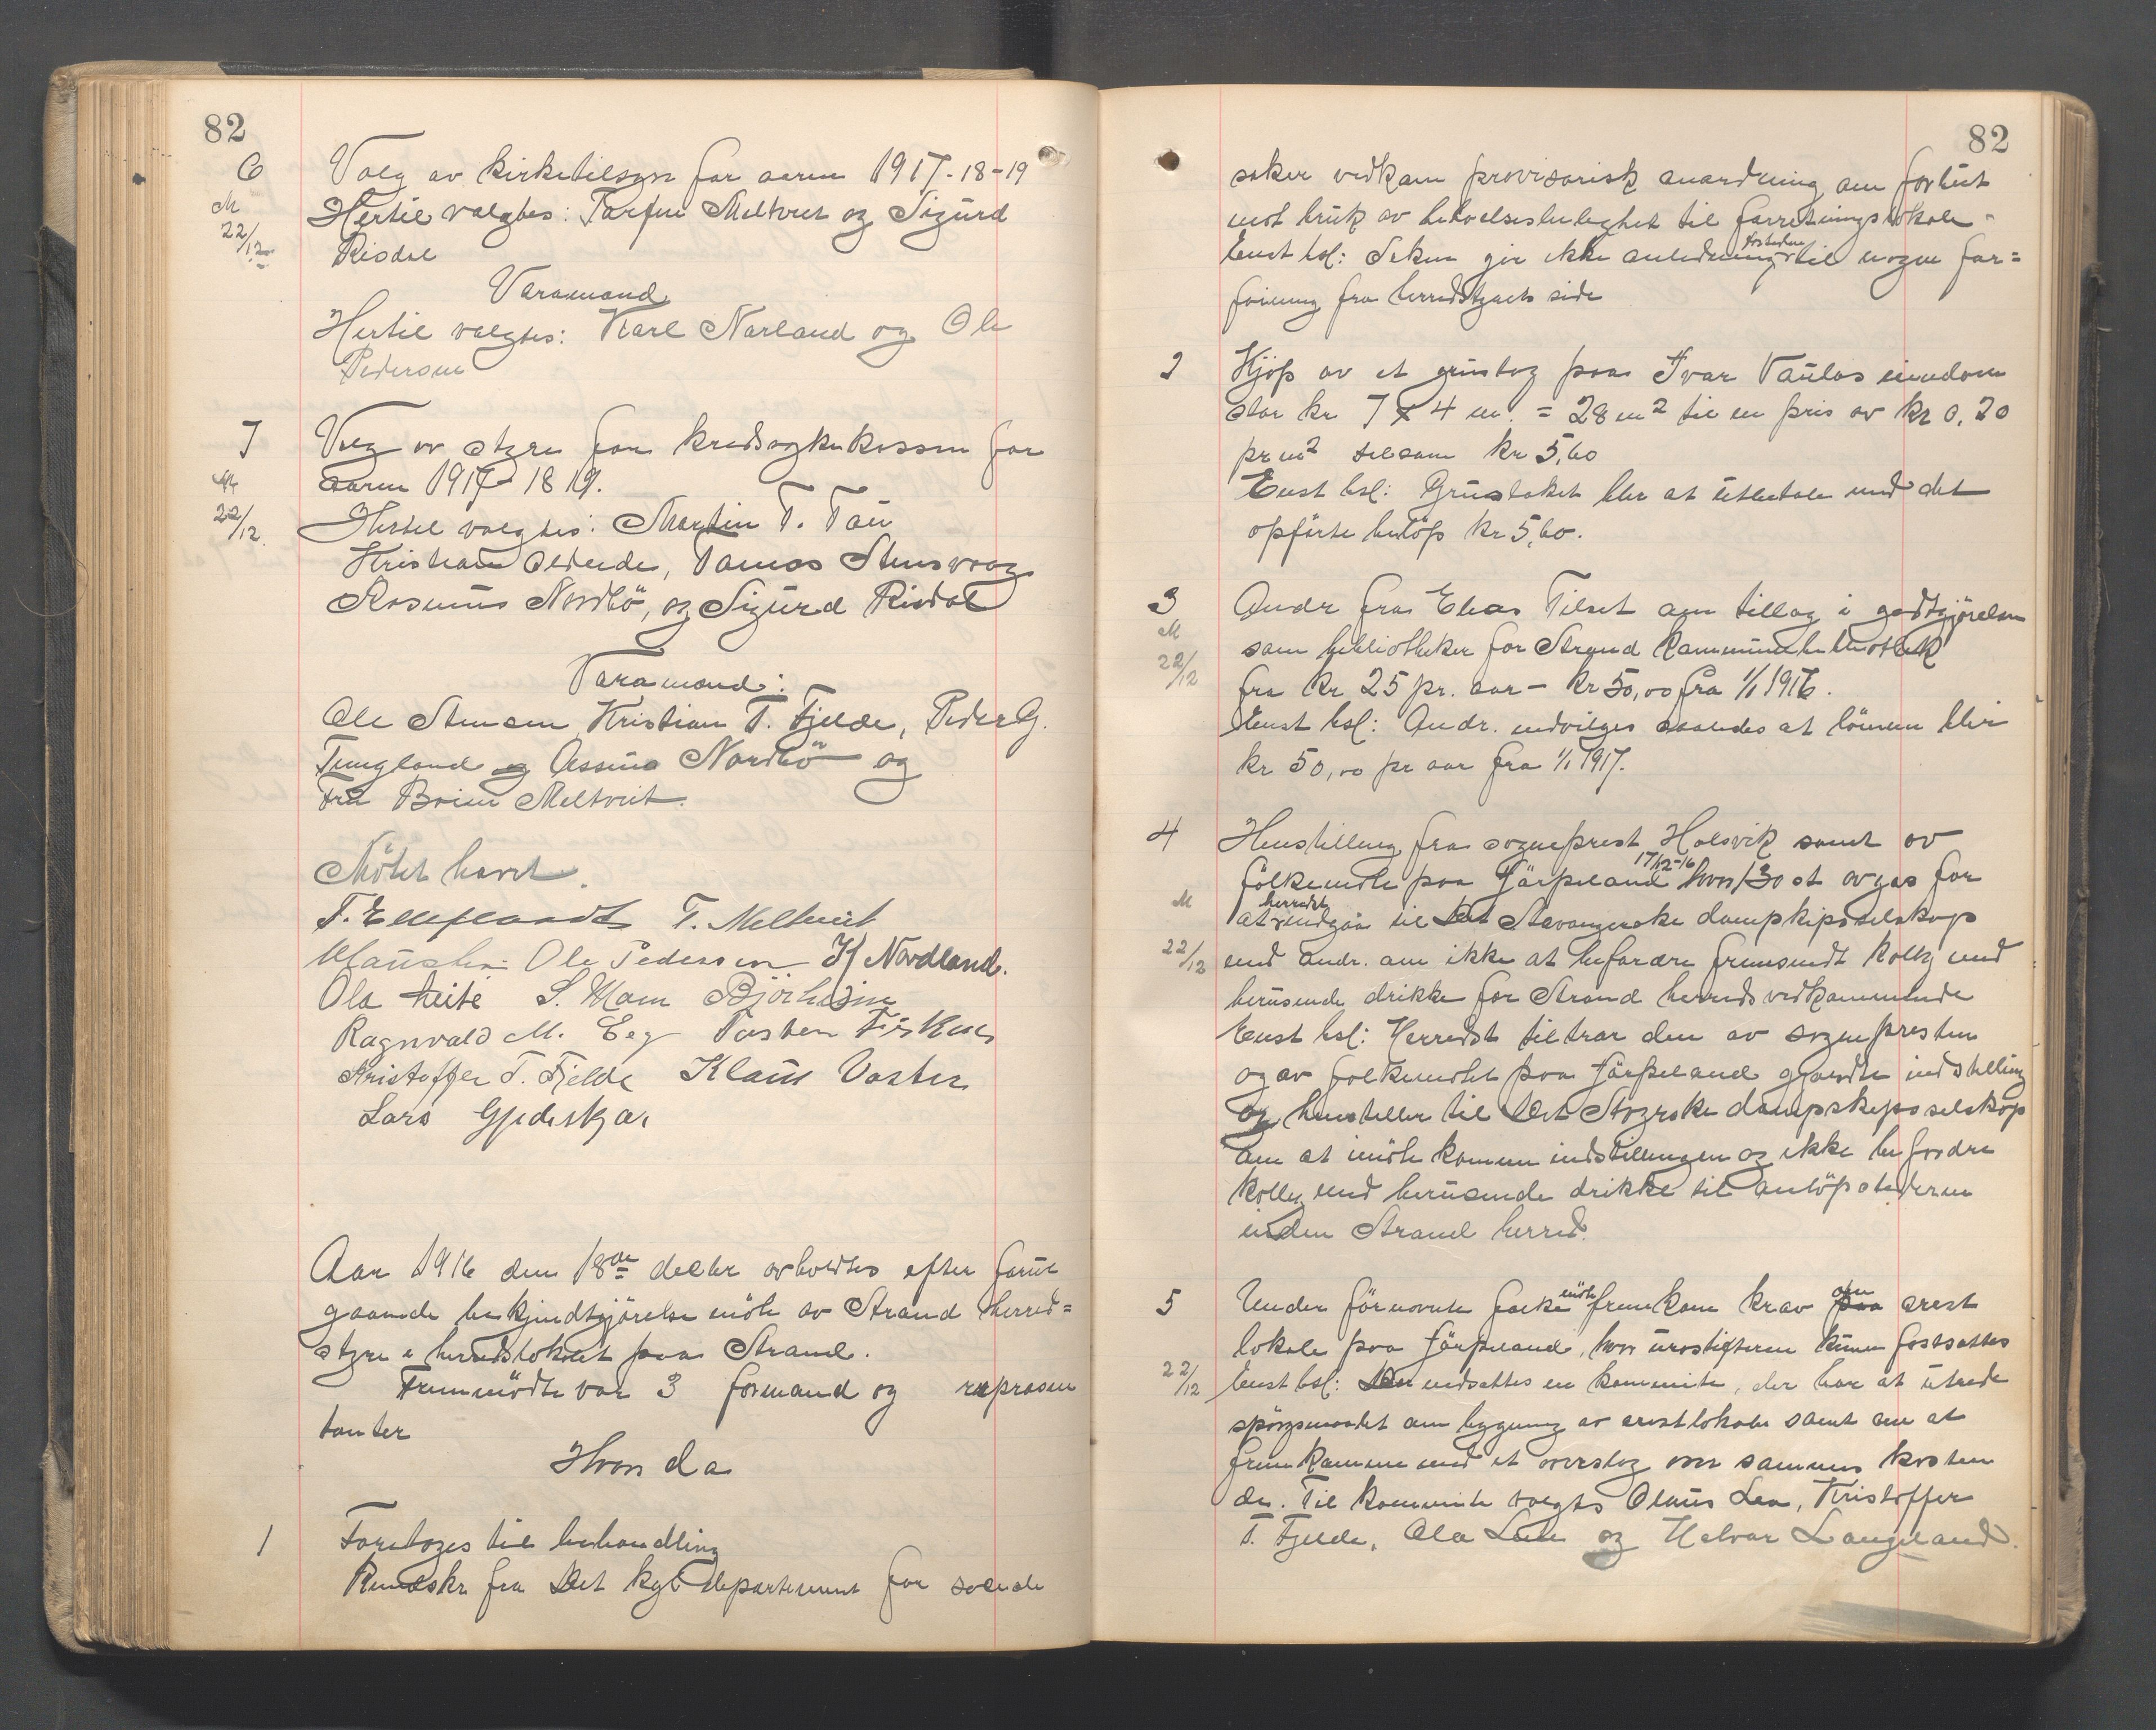 82
6
M
22/12
Valg av kirketilsyn for aaren 1917-18-19
Hertil valgtes: Torfin Meltveit og Sigurd
Risdal
Varamænd
Hertil valgtes: Karl Norland og Ole
Pedersen
7
M
22/12.
Valg av styre for kredssykekassen for
aaren 1917-18 19.
Hertil valgtes: Martin T. Tau
Kristian, Tomas Stensvoag
Rasmus Nordbö, og Sigurd Risdal
Varamænd:
Ole Stensen, Kristian T. Fjelde, Peder G.
Tungland og Rasmus Nordbö og
Fru Meltveit.
Mötet hævet.
T. T. Meltveit
Ole Pedersen K Nordland.
Ola Leite S. Mam Björheim
Ragnvald M. Eeg Torsten Fiskaa
Kristoffer T. Fjelde Klaus Vaster
Lars Gjedskjær
Aar 1916 den 18de decbr avholdtes efter forut
gaaende bekjendtgjörelse möte av Strand herred=
styre i herredslokalet paa Strand.
Fremmödte var 3 formænd og repræsen
tanter
Hvor da
1
Foretoges til behandling
Rundskr fra Det kgl departement for sociale
82
saker vedkom provisorisk anordning om forbud
mot bruk av beboelsesleilighet til forretningslokale.
Enst bsl: Saken gir ikke anledning til nogen for=
föining fra herredstyrets side
2
Kjöp av et grustag paa Ivar Taulas eiendom
stor kr 7 x 4 m. = 28 m2 til en pris av kr 0,20
pr m2 tilsam kr 5,60
Enst bsl: Grustaket blir at utbetale med det
opförte belöp kr 5,60.
3
M
22/12
Andr fra Elias Tilset om tillæg i godtgjörelsen
som bibliotheker for Strand kommunebibliothek
fra kr 25 pr. aar - kr 50,00 fra 1/1 1916.
Enst bsl: Andr. indvilges saaledes at lönnen blir
kr 50,00 pr aar fra 1/1 1917.
4
M
22/12
Henstilling fra sogneprest Holsvik samt av
folkemöte paa Jörpeland 17/12-16 hvor 130 st avgas for
at herredst indgaa til Det Stavangerske dampskipsselskap
med andr. om ikke at befordre fremsendt kolly med
berusende drikke for Strand herreds vedkommende
Enst bsl: Herredst tiltrær den av sognepresten
og av folkemötet paa Jörpeland gjorde indstilling
og henstiller til Det Stvgrske dampskipsselskap
om at imöte komme indstillingen og ikke befordre
kolly med berusende drikke til anlöpstederne
inden Strand herred.
5
22/12
Under förnævnte folkemöte fremkom krav om arest
lokale paa Jörpeland, hvor urostifterne kunne fastsættes
Enst bsl: Der nedsættes en kommite, der har at utrede
spörgsmaalet om bygning av arestlokale samt om at
fremkomme med et overslag over sammes kosten
de. Til kommite valgtes Olaus Lea, Kristoffer
T. Fjelde, Ola og Halvor Langeland.